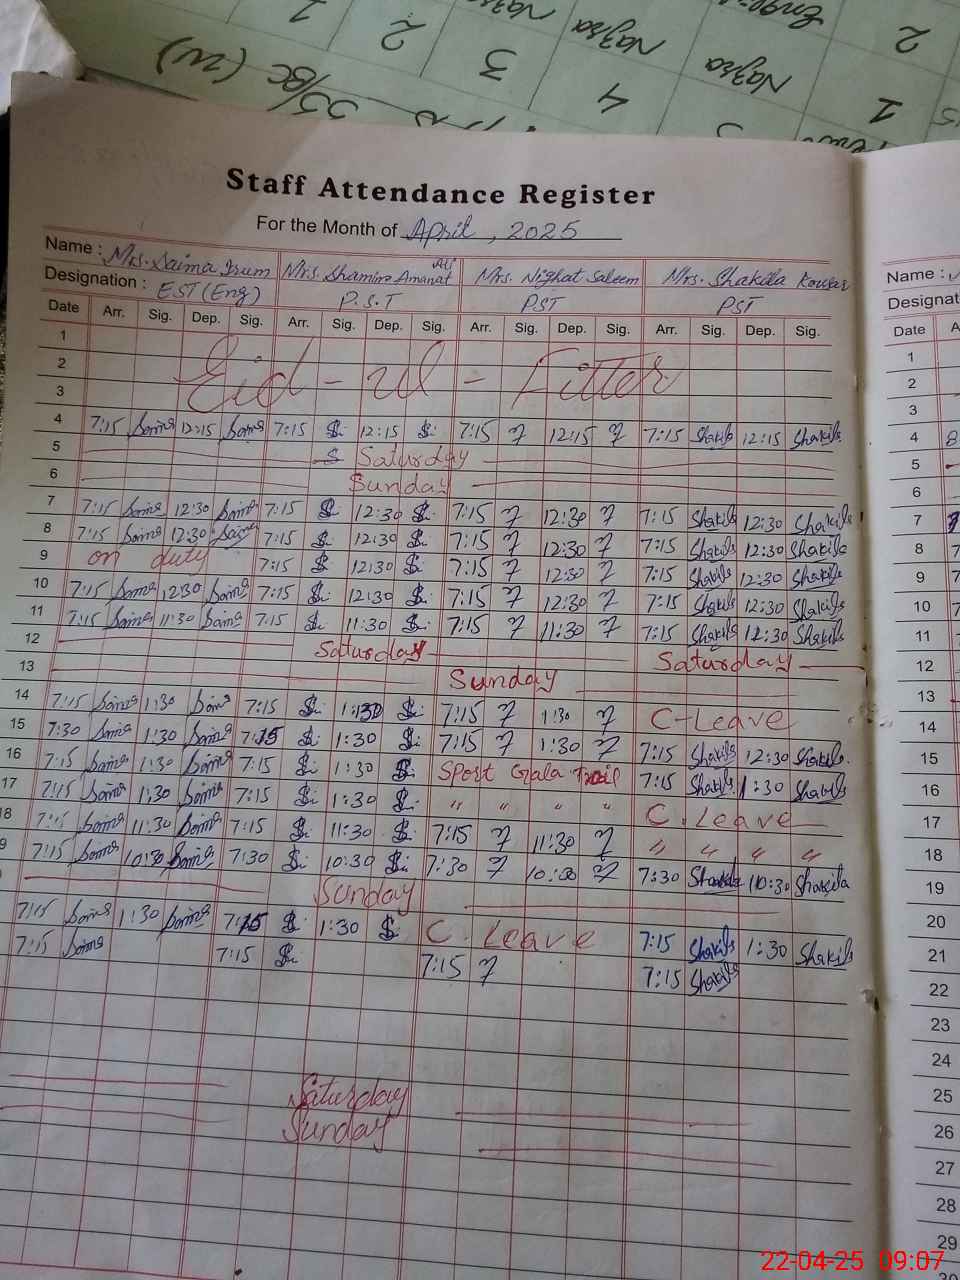 1 2 3 4 5
Nazra Nazra Nazra
Staff Attendance Register
For the Month of April, 2025
Name : Mrs. Saima Irum Mrs. Shamim Amanat Ali Mrs. Nighat Saleem Mrs. Shakila Kousar
Designation : EST (Eng) P.S.T PST PST
Date Arr. Sig. Dep. Sig. Arr. Sig. Dep. Sig. Arr. Sig. Dep. Sig. Arr. Sig. Dep. Sig.
1
2 Eid - ul - Fitter
3
4 7:15 Saima 12:15 Saima 7:15 S. 12:15 S. 7:15 12:15 7:15 Shakila 12:15 Shakila
5 S Saturday
6 Sunday
7 7:15 Saima 12:30 Saima 7:15 S. 12:30 S. 7:15 12:30 7:15 Shakila 12:30 Shakila
8 7:15 Saima 12:30 Saima 7:15 S. 12:30 S. 7:15 12:30 7:15 Shakila 12:30 Shakila
9 on duty 7:15 S. 12:30 S. 7:15 12:30 7:15 Shakila 12:30 Shakila
10 7:15 Saima 12:30 Saima 7:15 S. 12:30 S. 7:15 12:30 7:15 Shakila 12:30 Shakila
11 7:15 Saima 11:30 Saima 7:15 S. 11:30 S. 7:15 11:30 7:15 Shakila 12:30 Shakila
12 Saturday Saturday
13 Sunday
14 7:15 Saima 1:30 Saima 7:15 S. 1:30 S. 7:15 1:30 C-Leave
15 7:30 Saima 1:30 Saima 7:15 S. 1:30 S. 7:15 1:30 7:15 Shakila 12:30 Shakila
16 7:15 Saima 1:30 Saima 7:15 S. 1:30 S. Sport Gala 7:15 Shakila 1:30 Shakila
17 7:15 Saima 1:30 Saima 7:15 S. 1:30 S. " " " " C. Leave
18 7:15 Saima 11:30 Saima 7:15 S. 11:30 S. 7:15 11:30 " " " "
9 7:15 Saima 10:30 Saima 7:30 S. 10:30 S. 7:30 10:00 7:30 Shakila 10:30 Shakila
Sunday
7:15 Saima 1:30 Saima 7:15 S. 1:30 S. C. Leave 7:15 Shakila 1:30 Shakila
7:15 Saima 7:15 S. 7:15 7:15 Shakila
Saturday
Sunday
Name :
Designat
Date A
1
2
3
4 8
5
6
7
8 7
9 7
10 7
11 7
12
13
14
15
16
17
18
19
20
21
22
23
24
25
26
27
28
29
22-04-25 09:07